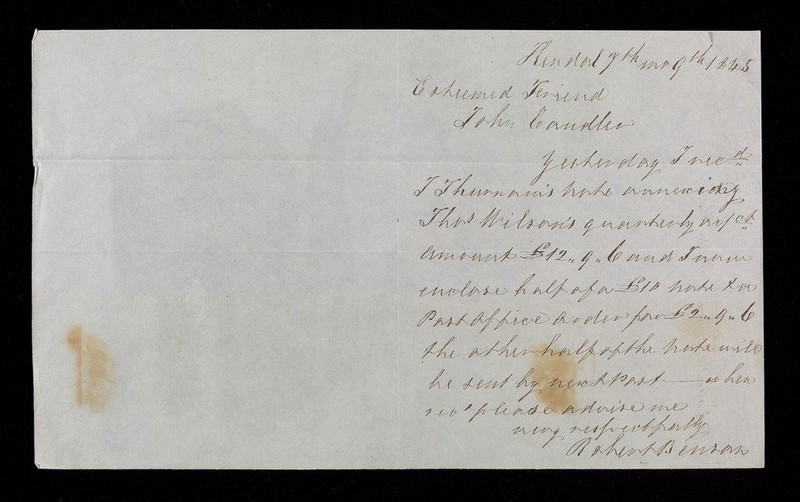 Kendal 7th mo 9th 1845
Esteemed Friend
John Candler
Yesterday I recd
T Thurnam's note annexing
Thos Wilson's quarterly a/ct
amount £12,, 9,, 6 and I now
enclose half of a £10 note & a
Post Office order for £2,, 9,, 6
the other half of the note will
be sent by next Post — when
recd please advise me
very respectfully
Robert Benson